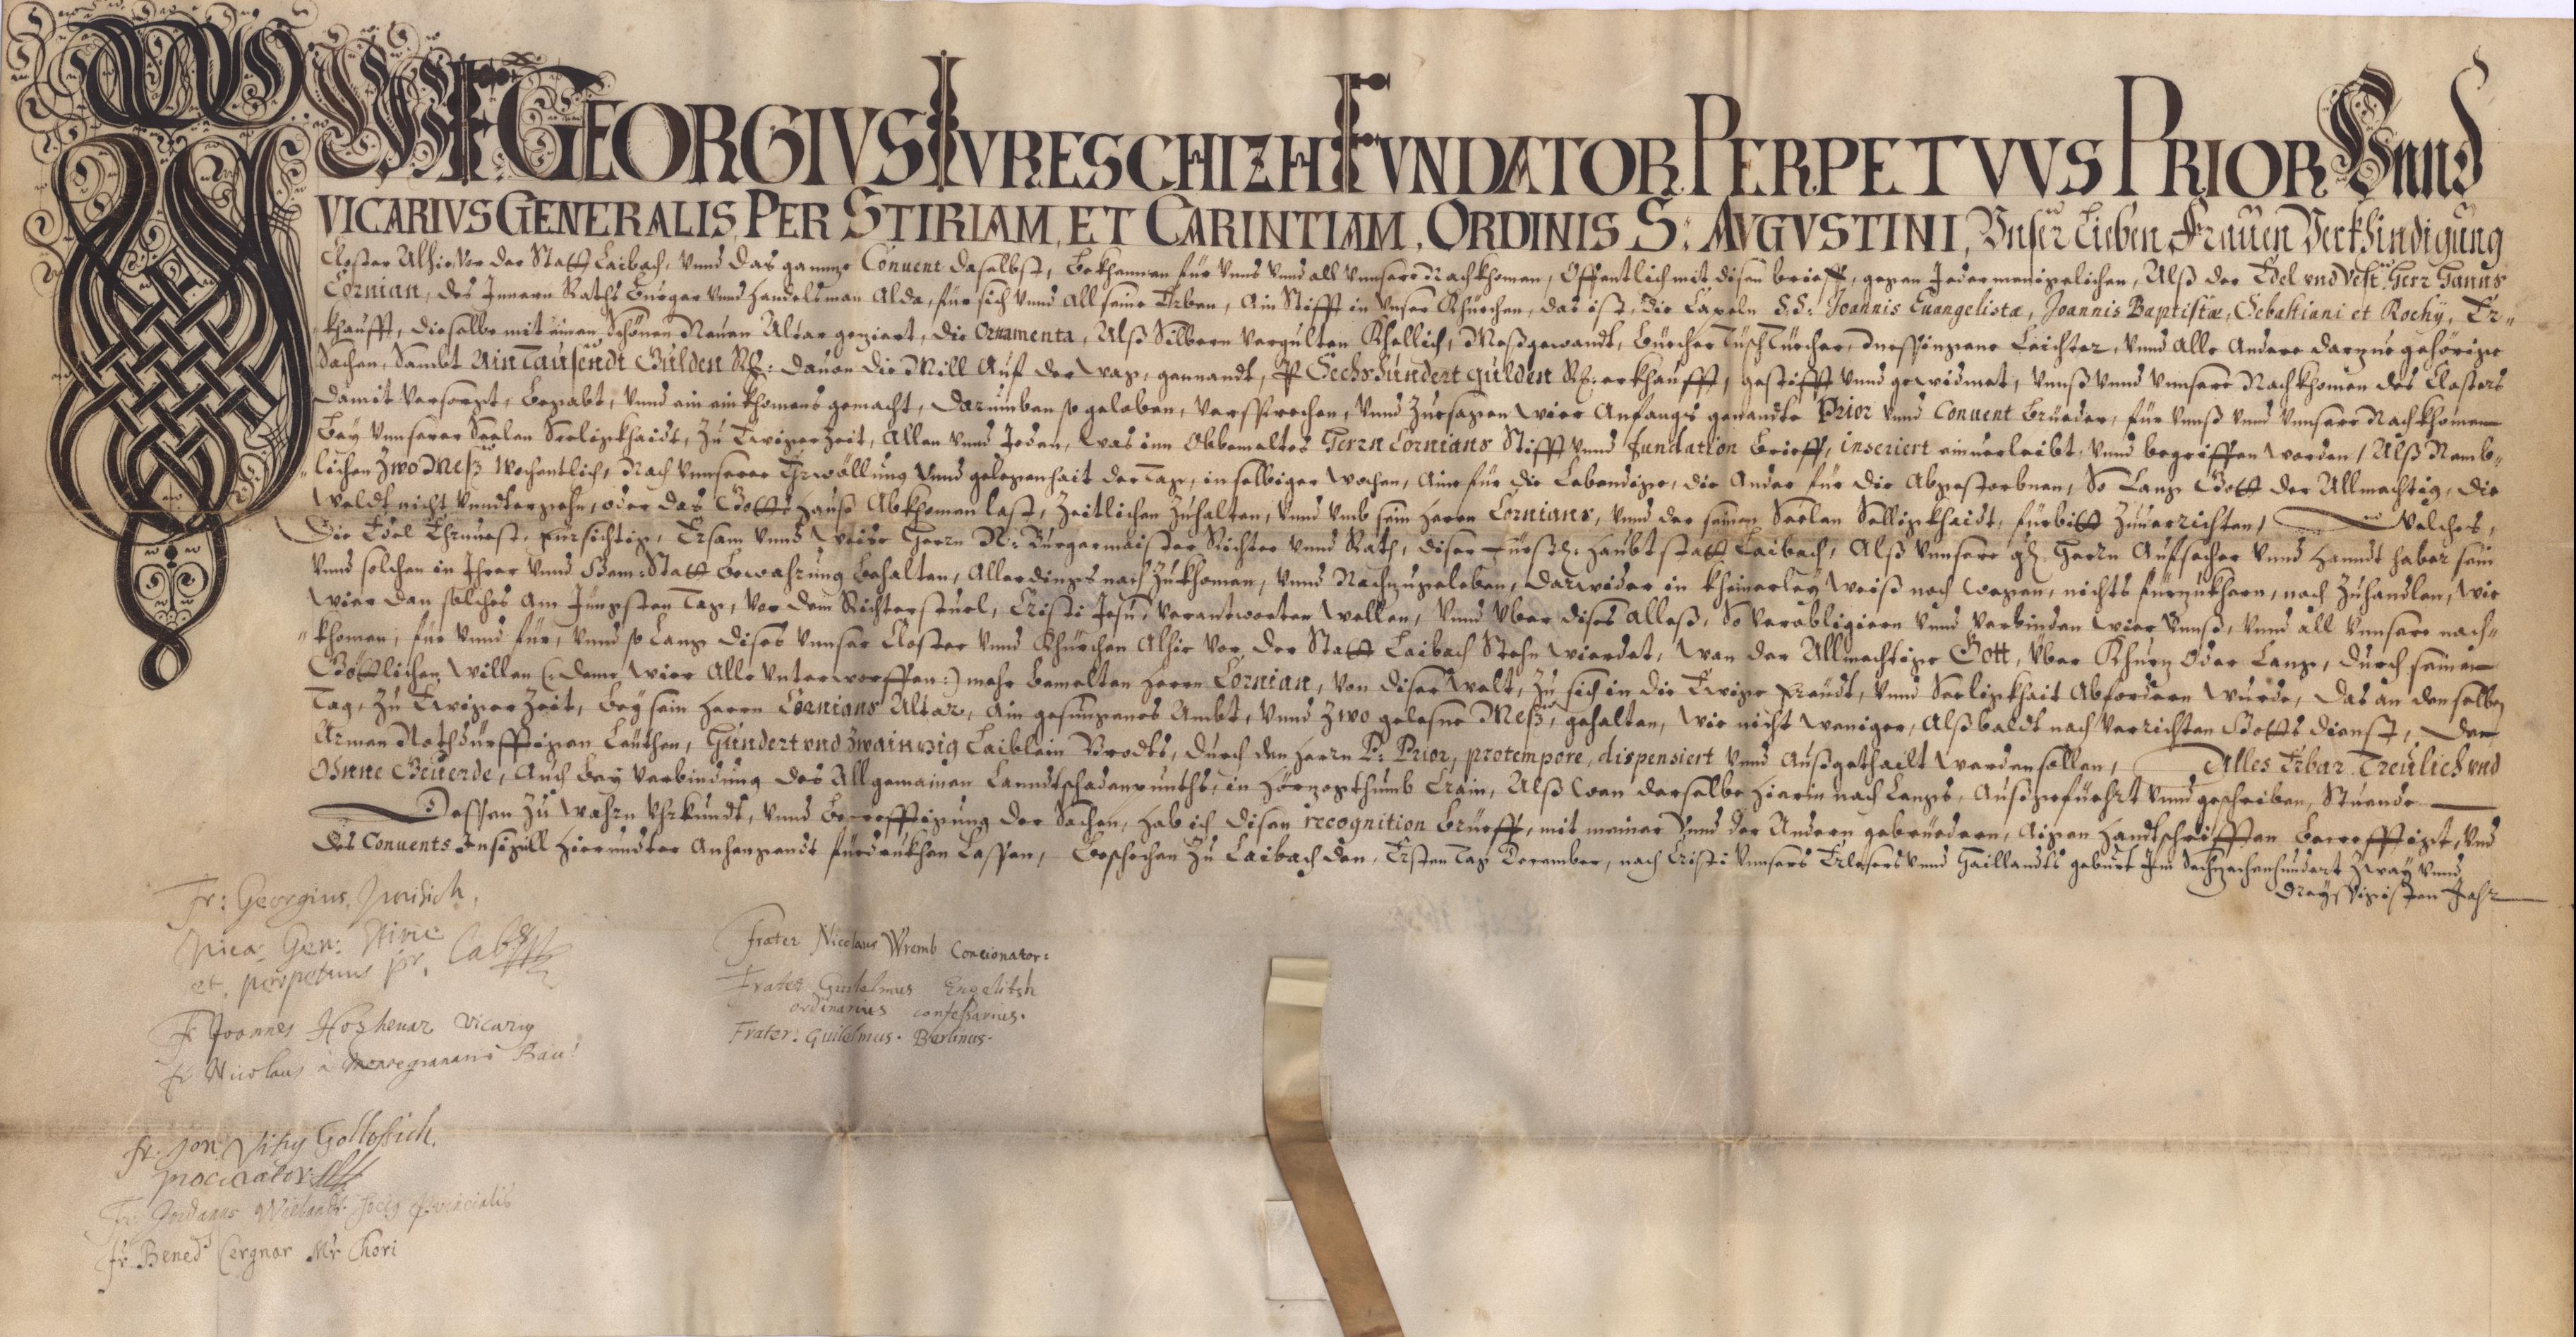 WIR GEORGIVS IVRESCHIZH FVNDATOR PERPETVVS PRIOR Vnnd
VICARIVS GENERALIS, PER STIRIAM, ET CARINTIAM, ORDINIS S: AVGVSTINI, Vnser Lieben Frauen Verkhindigung
Closter Alhie, Vor der Statt Laibach, Vnnd das gannze Conuent daselbst, Bekhennen für Vnns Vnnd all Vnnsere Nachkhomen, Offentlich mit disen brieff, gegen Jedermenigelichen, Alß der Edel vnd Vest Herr Hanns
Cornian, des Innern Raths Burger Vnnd Handelsman Alda, für sich Vnnd All seine Erben, Ain Stifft in Vnser Khürchen, das ist, die Capeln S.S: Joannis Euangelistæ, Joannis Baptistæ, Sebastiani et Rochy, Er„
khaufft, dieselbe mit ainen Schönen Neuen Altar geziert, die Ornamenta, Alß Silbern Vergulten Khellich, Meßgewandt, Büecher Tüsch Tüecher, Leichter, Vnnd Alle Andere darzue gehörige
Sachen, Sambt Ain Tausendt Gulden R: dauon die Mill Auf der genandt, Sechshundert gulden R: erkhaufft, gestifft Vnnd gewidmet, Vnnß Vnnd Vnnsere Nachkhomen des Closters
damit Versorgt, Begabt, Vnnd ein einkhomens gemacht, darumben so geloben, Versprechen, Vnnd Zuesagen Wier Anfangs genandte Prior Vnnd Conuent Brüeder, für Vnnß Vnnd Vnnsere Nachkhomen
Bey Vnnserer Seelen Seeligkhaidt, Zu Ewiger Zeit, Allen Vnnd Jeden, Was inn Obbemeltes Herrn Cornians Stifft Vnnd fundation Brieff, inseriert einuerleibt, Vnnd begriffen worden, Alß Nemb„
„lichen Zwo Meß Wochentlich, Nach Vnnserer Erwöllung Vnnd gelegenhait der Tag, in selbiger Wochen, Aine für die Lebendige, die Ander für die Abgestorbnen, So Lang Gott der Allmechtig, die
Weldt nicht Vnndtergehn, oder das Gotts Hauß Abkhomen last, Zeitlichen Zuhalten, Vnnd Vmb sein Herrn Cornians, Vnnd der seinen Seelen Selligkhaidt, fürbitt Zuuerrichten, Welches,
Die Edel Ehrnuest, Fürsichtig, Ersam Vnnd Weise Herrn N: Burgermaister Richter Vnnd Rath, diser Fürstl: Haubtstatt Laibach, Alß Vnnsere gl: Herrn Aufsecher Vnnd Hanndt haber sein
Vnnd solchen in Ihrer Vnnd Gem: Statt Bewahrung behalten, Allerdings nach Zukhomen, Vnnd Nachzugeleben, darwider in kheinerley Weiß noch Weegen, nichts fürzukhern, noch Zuhandlen, Wie
Wier dan solches Am Jüngsten Tag, Vor dem Richterstuel, Cristi Jesu, Verantworten wellen, Vnnd Vber dises Alleß, So Verobligiern Vnnd Verbinden Wier Vnnß, Vnnd all Vnnsere nach„
„khomen, für Vnnd für, Vnnd so Lang dises Vnnser Closter Vnnd Khürchen Alhie Vor der Statt Laibach Stehn Wierdet, Wan der Allmechtige Gott, Vber Khurz Oder Lang, durch seinen
Göttlichen Willen (: deme Wier Alle Vnterworffen :) mehr bemelten Herrn Cornian, Von diser Welt, Zu sich in die Ewige Freudt, Vnnd Seeligkhait Abfordern Wurde, das an denselben
Tag, Zu Ewiger Zeit, Bey sein Herrn Cornians Altar, Ain gesungenes Ambt, Vnnd Zwo gelesne Meß, gehalten, Wie nicht Weniger, Alßbaldt nach Verrichten Gotts dienst, den
Armen Nothdürfftigen Leüthen, Hundert vnd Zwainzig Laiblein Brodts, durch den Herrn P: Prior, protempore, dispensiert Vnnd Außgethailt Werden sollen, Alles Erbar Treulich vnd
Ohnne Geuerde, Auch Bey Verbindung des Allgemainen Lanndtschadenpunths, in Hörzogthumb Crain, Alß Wan derselbe Hierin nach Lengs, Außgefüehrt Vnnd geschriben, Stuende
Dessen Zu Wahrn Vhrkundt, Vnnd Becrefftigung der Sachen, Hab ich disen recognition Brüeff, mit meiner Vnnd der Andern gebrüedern, Aignen Handtschrifften becrefftigt, Vnd
des Conuents Insigill Hierundter Anhangendt fürdrukhen Lassen, Beschechen Zu Laibach den, Ersten Tag December, nach Cristi Vnnsers Erlesers Vnnd Haillandts geburt Im Sechzechenhundert Zway Vnnd
Dreyssigisten Jahr
Fr: Georgius Jurisich,
Vica: Gen: Stirie
et, perpetuus pr, Lab
Fr Joannes Hosheuar Vicarius
fr Nicolaus à
fr. Jon Vitus Gollobich
procurator
Fr: Jordanus Provincialis
fr. Bened Cergnar Mr Chori
Frater Nicolaus Wremb Concionator:
Frater Guilelmus Engelitsh
ordinarius confessarius.
Frater: Guilelmus. Berlinus.